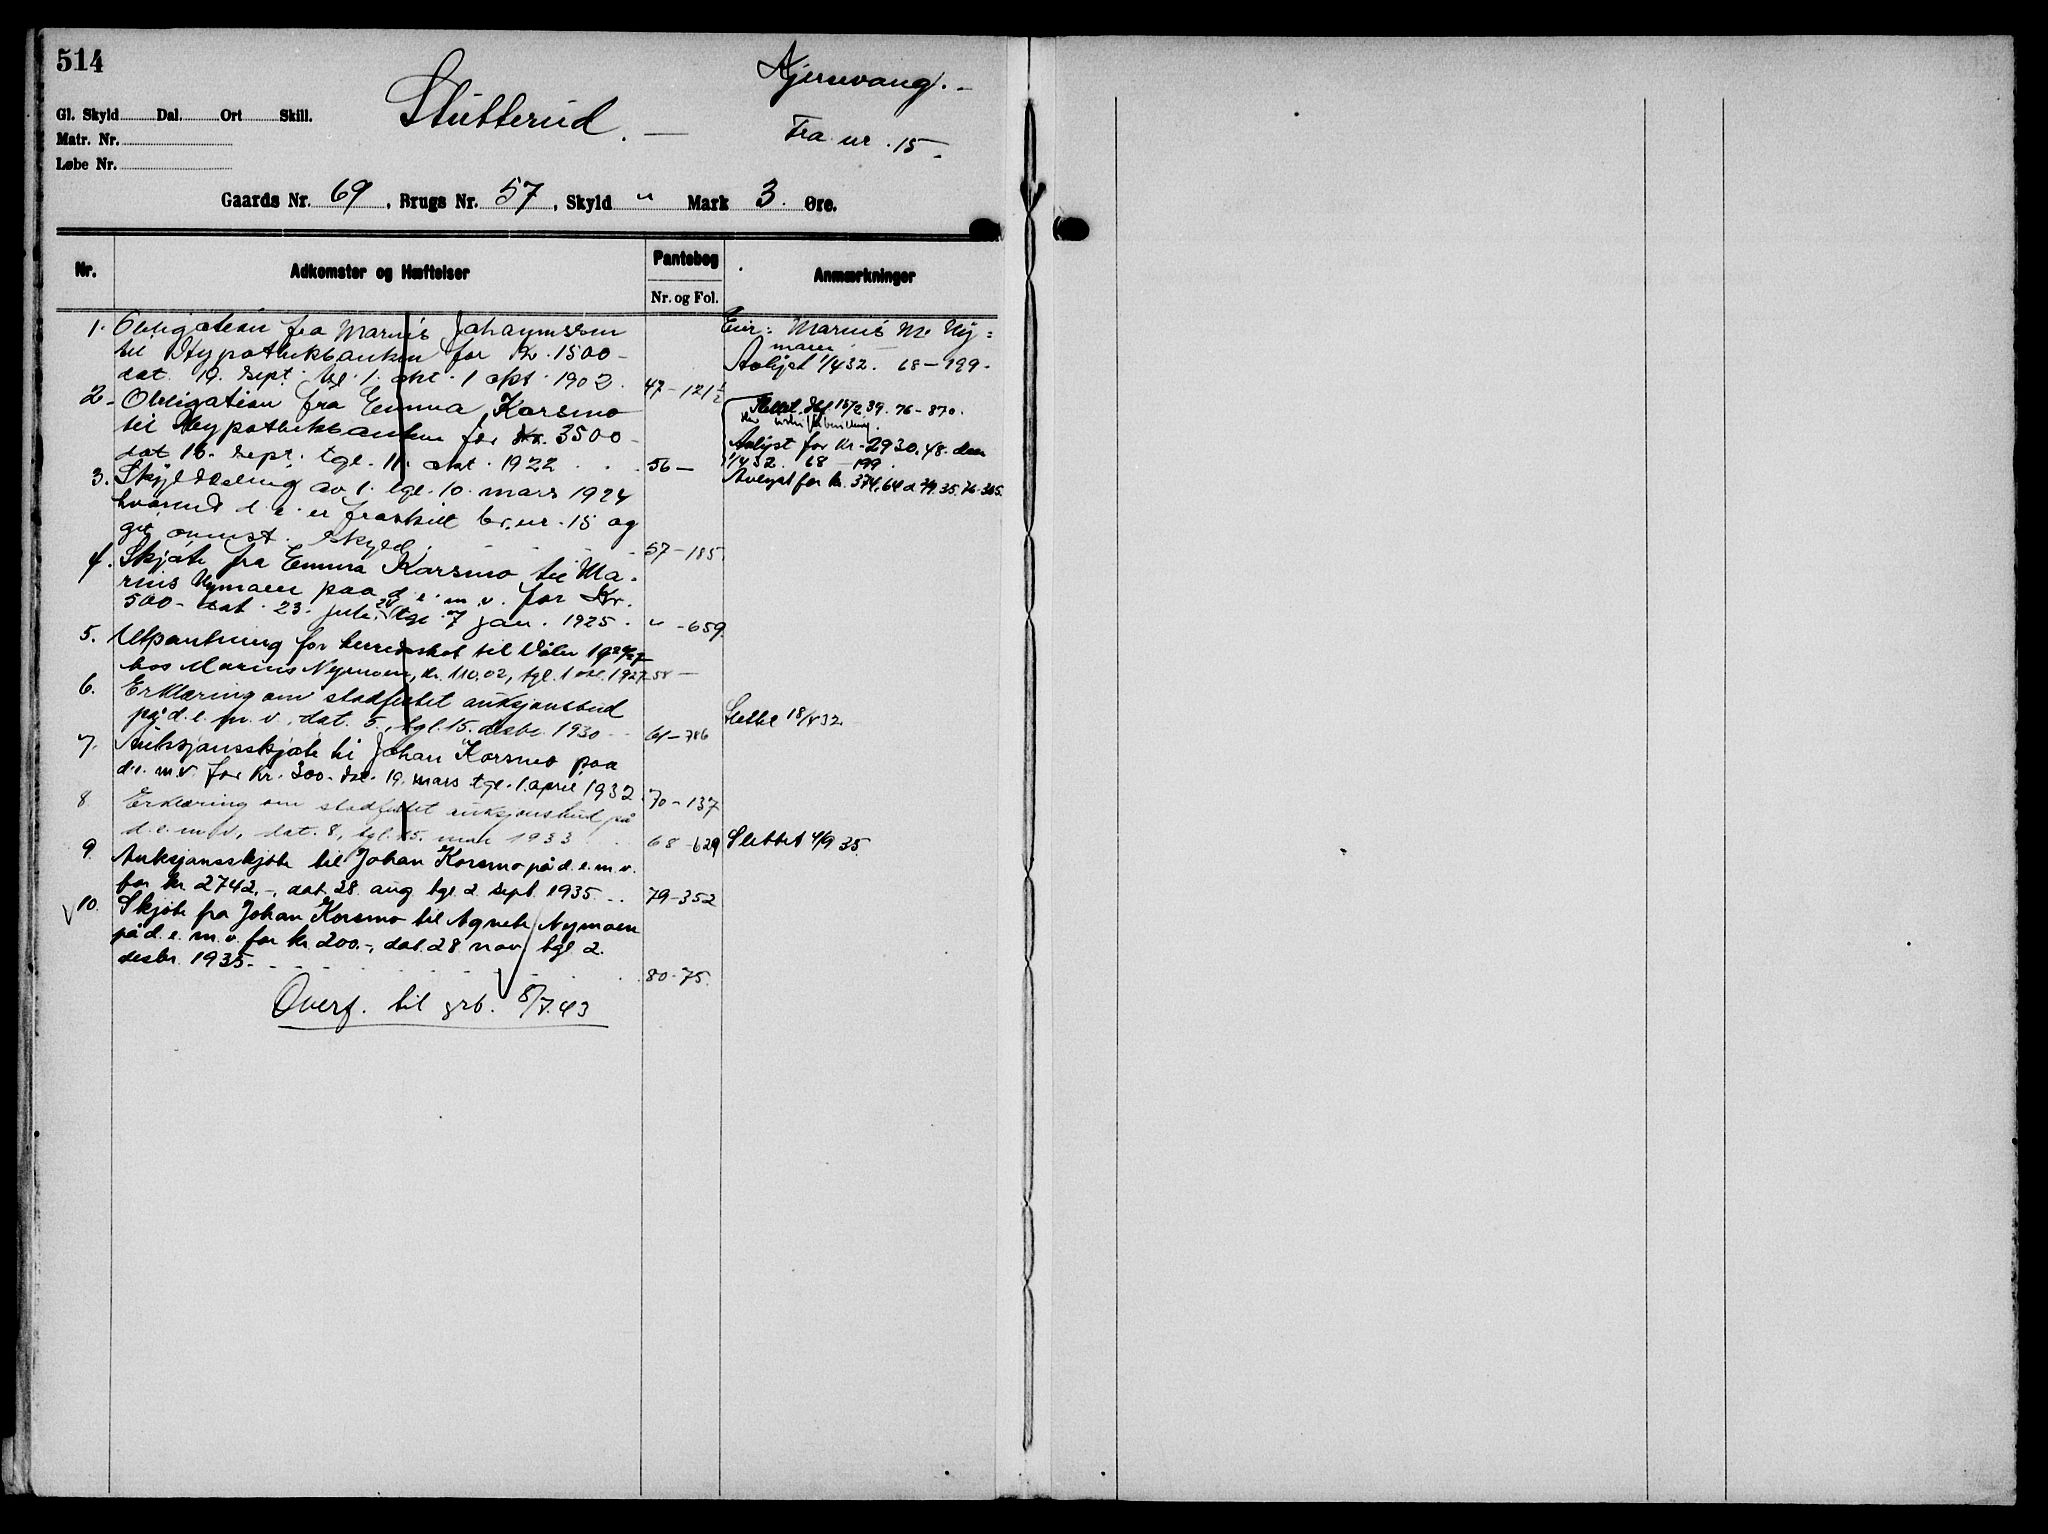 514
Kjernvang.
Slutterud.
Fra nr. 15.
Gl. Skyld Dal. Ort Skill.
Matr. Nr.
Løbe Nr.
Gaards Nr. 69, Brugs Nr. 57, Skyld " Mark 3 Øre.
Nr. Adkomster og Hæftelser Pantebog Anmærkninger
Nr. og Fol.
1. Obligation fra Marius Johannessen
til Hypothekbanken for Kr. 1500-
dat. 19. sept. tgl. 1. okt. 1902. 47-121
Eier: Marius M. Ny=
moen
Avlyst 1/4 32. 68-199.
2. Obligation fra Emma Korsmo
til Hypothekbanken for Kr. 3500-
dat 16. sept. tgl. 11. okt. 1922 56-
15/2 39. 76-870.
Avlyst for kr. 2930,48 den
1/4 32. 68-199.
Avlyst for kr. 374,64 35. 76-365.
3. Skylddeling av 1. tgl. 10. mars 1924
hvorved d. e. er fraskilt br. nr. 15 og
git omnst. skyld. 57-185
4. Skjøte fra Emma Korsmo til Ma-
rius Nymoen paa d. e. m. v. for Kr.
500- dat. 23. juli 24 tgl. 7 jan. 1925. " -659.
5. Utpantning for herredsskat til Våler 1926/27
hos Marius Nymoen, kr. 110,02, tgl. 1 okt. 1927 58-
6. Erklæring om stadfestet auksjonsbud
på d. e. m. v. dat. 5, tgl. 15. desbr. 1930 61-786
Slettet 18/4 32
7. Auksjonsskjøte til Johan Korsmo paa
d. e. m. v. for kr. 300- dat. 19. mars tgl. 1. april 1932 70-137
8 Erklæring om stadfestet auksjonsbud på
d. e. m. v., dat. 8, tgl. 15. mai 1933 68-629
Slettet 4/9 35.
9. Auksjonsskjøte til Johan Korsmo på d. e. m. v.
for kr. 2742,-, dat. 28. aug tgl. 2. sept. 1935. 79-352
10. Skjøte fra Johan Korsmo til Agnete Nymoen
på d. e. m. v. for kr. 200.-, dat. 28. nov. tgl. 2.
desbr. 1935. 80-75.
Overf. til grb. 8/7.43